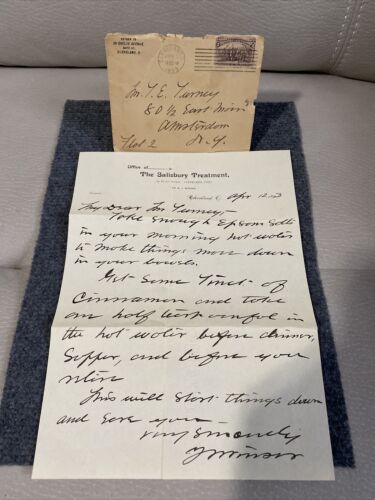 RETURN TO
EUCLID AVENUE
CLEVELAND, O.
1893
Mr. T. E. Turney
80 1/2 East Main
Amsterdam
Flat 2 N.Y.
Office of
The Salisbury Treatment,
Cleveland, O. Apr 12 93
My Dear Mr Turney,-
Take enough Epsom Salts
in your morning hot water
to make things move down
in your bowels.
Get some Tinct of
Cinnamon and take
one half teaspoonful in
the hot water before dinner,
Supper, and before you
retire
This will start things down
and ease you -
Very Sincerely